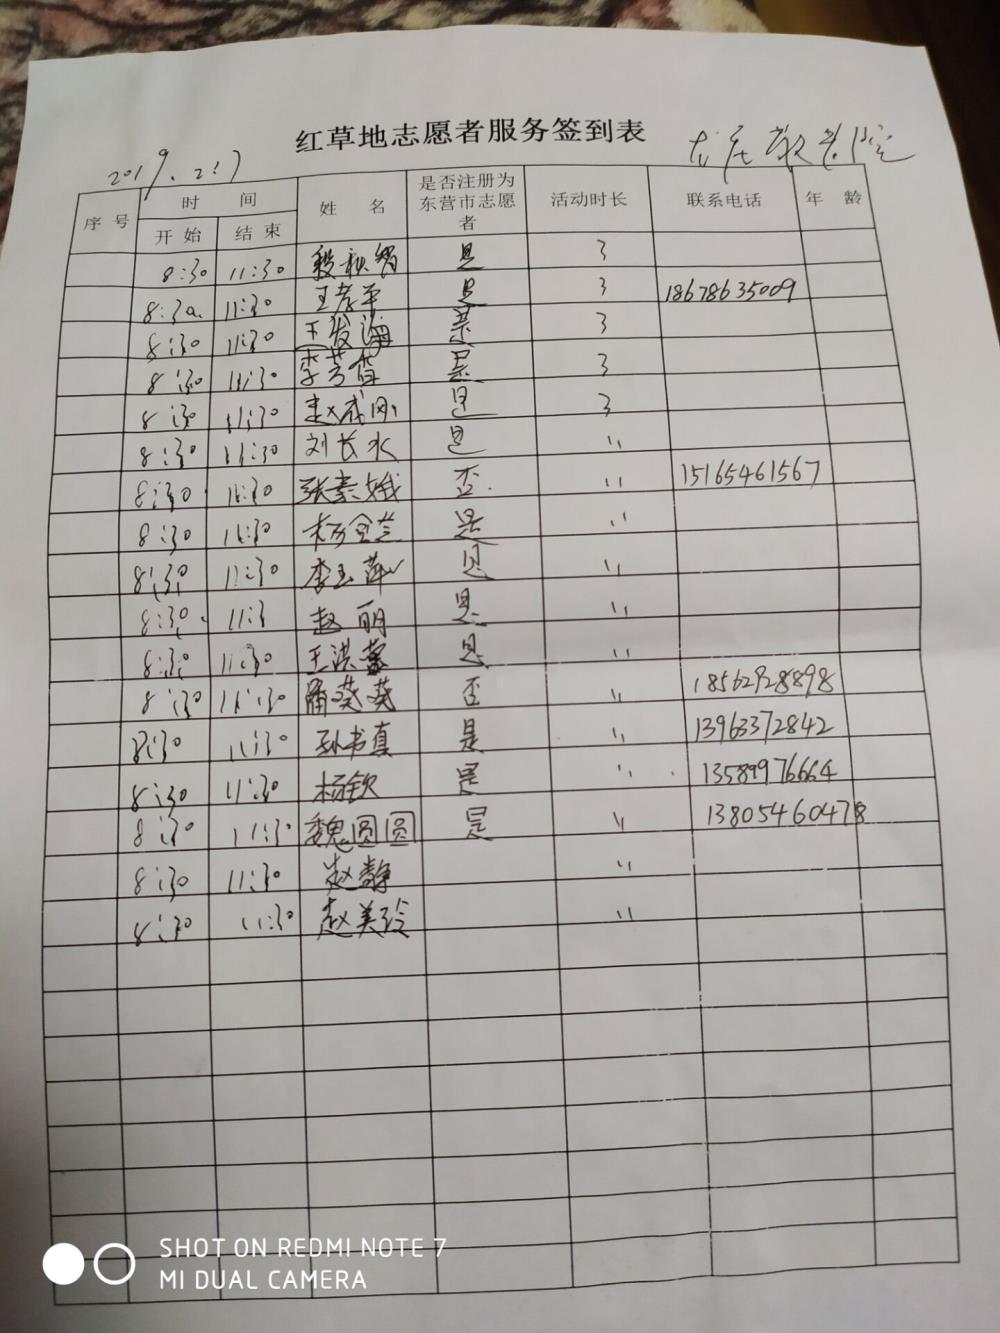 红草地志愿者服务签到表
2019.2.7
序号 时间 姓名 是否注册为东营市志愿者 活动时长 联系电话 年龄
开始 结束
8:30 11:30 是 3
8:30 11:30 王孝平 是 3 18678635009
8:30 11:30 王发海 是 3
8:30 11:30 李芳 是 3
8:30 11:30 赵成刚 是 3
8:30 11:30 刘长水 是 〃
8:30 11:30 张素娥 否. 〃 15165461567
8:30 11:30 杨金兰 是 〃
8:30 11:30 李玉萍 是 〃
8:30 11:3 赵丽 是 〃
8:30 11:30 王洪 是 〃
8:30 11:30 葵葵 否 〃 18562928898
8:30 11:30 孙书真 是 〃 13963372842
8:30 11:30 杨钦 是 〃 13589976664
8:30 11:30 魏圆圆 是 〃 13805460478
8:30 11:30 赵静 〃
8:30 11:30 赵美玲 〃
SHOT ON REDMI NOTE 7
MI DUAL CAMERA